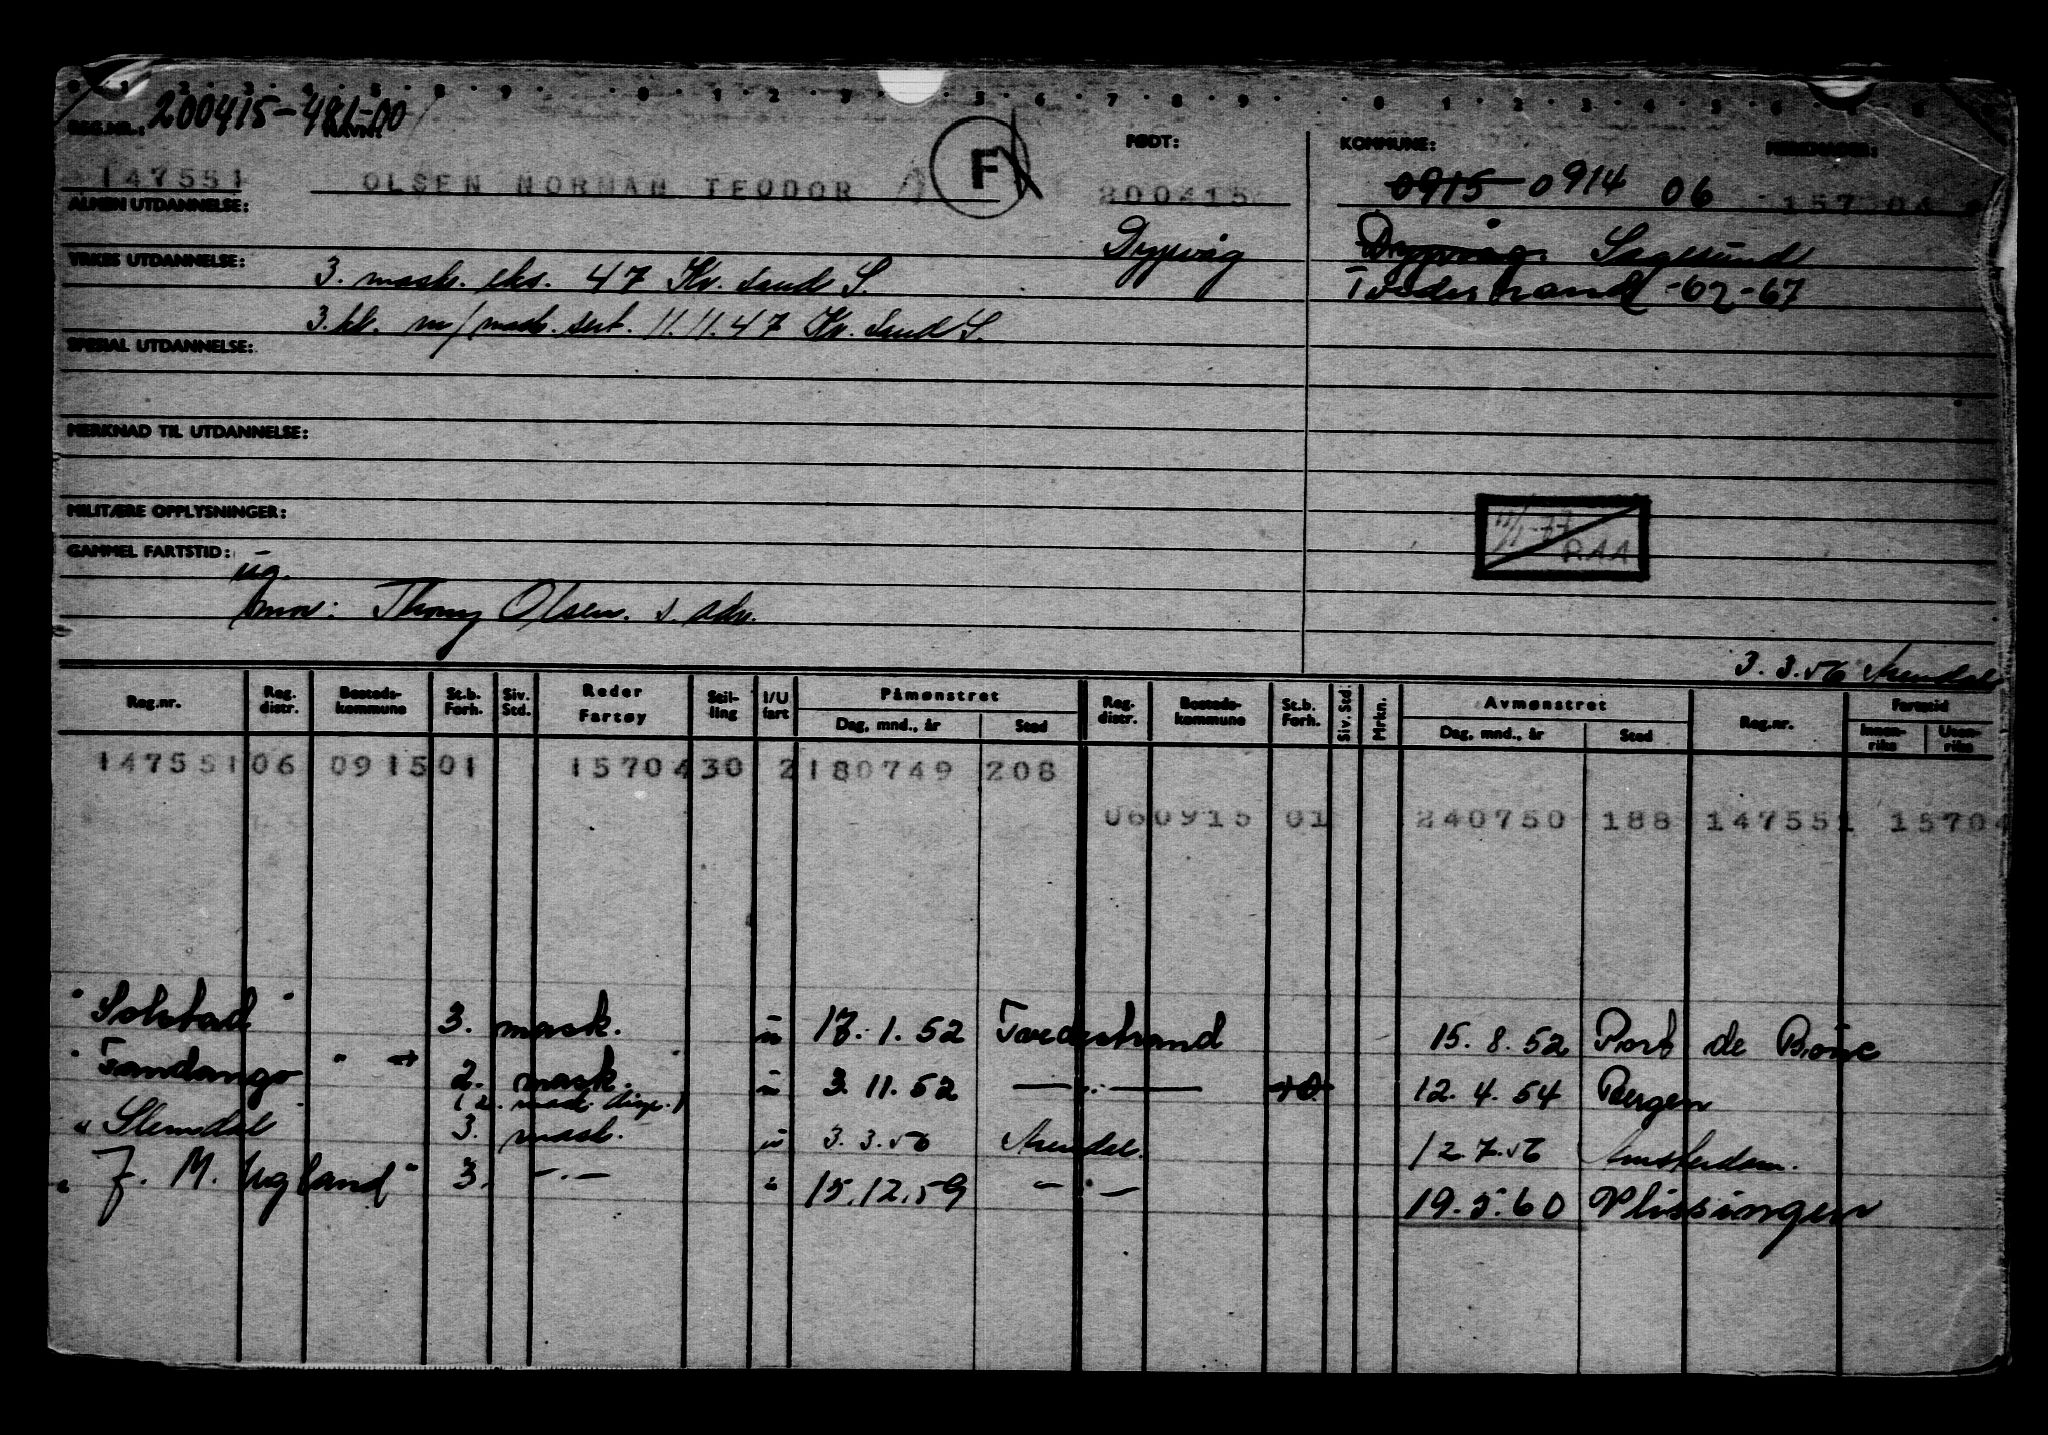 REG.NR.: 200415-481-00 NAVN: FØDT: KOMMUNE:
147551 OLSEN NORMAN TEODOR F 200415 0915 0914 06 15704
ALMEN UTDANNELSE: Dypvåg Dypvåg. Sagesund
YRKES UTDANNELSE: 3. mask. eks. 47 Kr. sand S. Tvedestrand -62-67
3. kl. m/mask. sert. 11.11.47 Kr. Sand S.
SPESIAL UTDANNELSE:
MERKNAD TIL UTDANNELSE:
MILITÆRE OPPLYSNINGER:
11/1-77 RAA
GAMMEL FARTSTID: ug.
mor: Thomy Olsen. s. adr.
3.3.56 Arendal
Reg.nr. Reg. distr. Bosteds-kommune St.b. Forh. Siv. Std. Reder Fartøy Stil-ling I/U fart Påmønstret Dag, mnd., år Sted Reg. distr. Bosteds-kommune St.b. Forh. Siv. Std. Mrkn. Avmønstret Dag, mnd., år Sted Reg.nr. Fartstid Innen-riks Uten-riks
147551 06 0915 01 15704 30 2 180749 208
06 0915 01 240750 188 147551 15704
"Solstad" 3. mask. u 17.1.52 Tvedestrand 15.8.52 Port de Bouc
"Fandango" 2. mask. u 3.11.52 —"— 12.4.54 Bergen
(2. mask. disp.)
"Slemdal 3. mask. u 3.3.56 Arendal. 12.7.56 Amsterdam.
"J. M. Ugland" 3. —"— " 15.12.59 —"— 19.5.60 Vlissingen